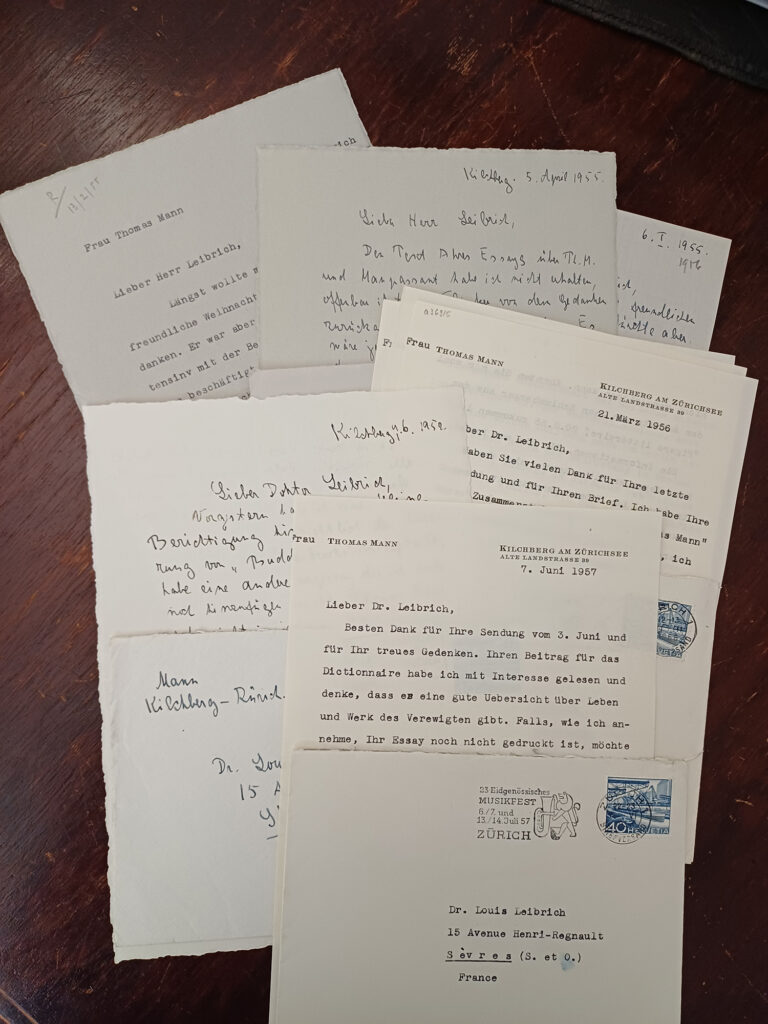 Frau Thomas Mann
Lieber Herr Leibrich,
Längst wollte
freundliche Weihnacht
danken. Er war aber
tensinv mit der Be
beschäftigt
Kilchberg. 5. April 1955.
Lieber Herr Leibrich,
Den Text Ihres Essays über Th. M.
und Maupassant habe ich nicht erhalten,
von dem Gedanken
6. I. 1955.
1956
freundlichen
Frau THOMAS MANN
KILCHBERG AM ZÜRICHSEE
ALTE LANDSTRASSE 39
21. März 1956
ber Dr. Leibrich,
aben Sie vielen Dank für Ihre letzte
dung und für Ihren Brief. Ich habe Ihre
Zusammen
as Mann"
, ich
Kilchberg
Lieber Doktor Leibrich,
Vorgestern
Berichtigung
rung von „Budd
habe eine andere
rau THOMAS MANN
KILCHBERG AM ZÜRICHSEE
ALTE LANDSTRASSE 39
7. Juni 1957
Lieber Dr. Leibrich,
Besten Dank für Ihre Sendung vom 3. Juni und
für Ihr treues Gedenken. Ihren Beitrag für das
Dictionnaire habe ich mit Interesse gelesen und
denke, dass es eine gute Uebersicht über Leben
und Werk des Verewigten gibt. Falls, wie ich an-
nehme, Ihr Essay noch nicht gedruckt ist, möchte
Mann
Kilchberg-Zürich.
Dr. Lou
15 A
23 Eidgenössisches
MUSIKFEST
6./7. und
13./14. Juli 57
ZÜRICH
40 HELVETIA
Dr. Louis Leibrich
15 Avenue Henri-Regnault
Sèvres (S. et O.)
France